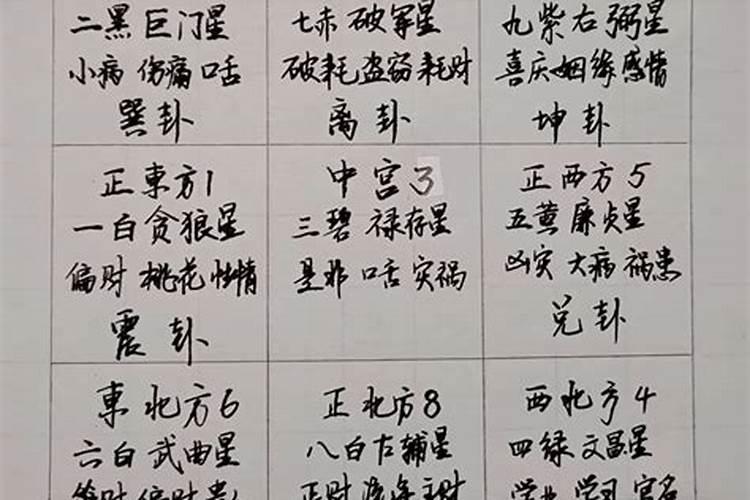 二黑 巨门星
小病 伤痛 口舌
巽卦
七赤 破军星
破耗 盗窃 耗财
离卦
九紫 右弼星
喜庆 姻缘 感情
坤卦
正東方1
一白 贪狼星
偏财 桃花 性情
震卦
中宫3
三碧 禄存星
是非 口舌 灾祸
正西方5
五黄 廉贞星
凶灾 大病 祸患
兑卦
東北方6
六白 武曲星
偏财
正北方8
八白 左辅星
正财
西北方4
四绿 文昌星
学业 学习